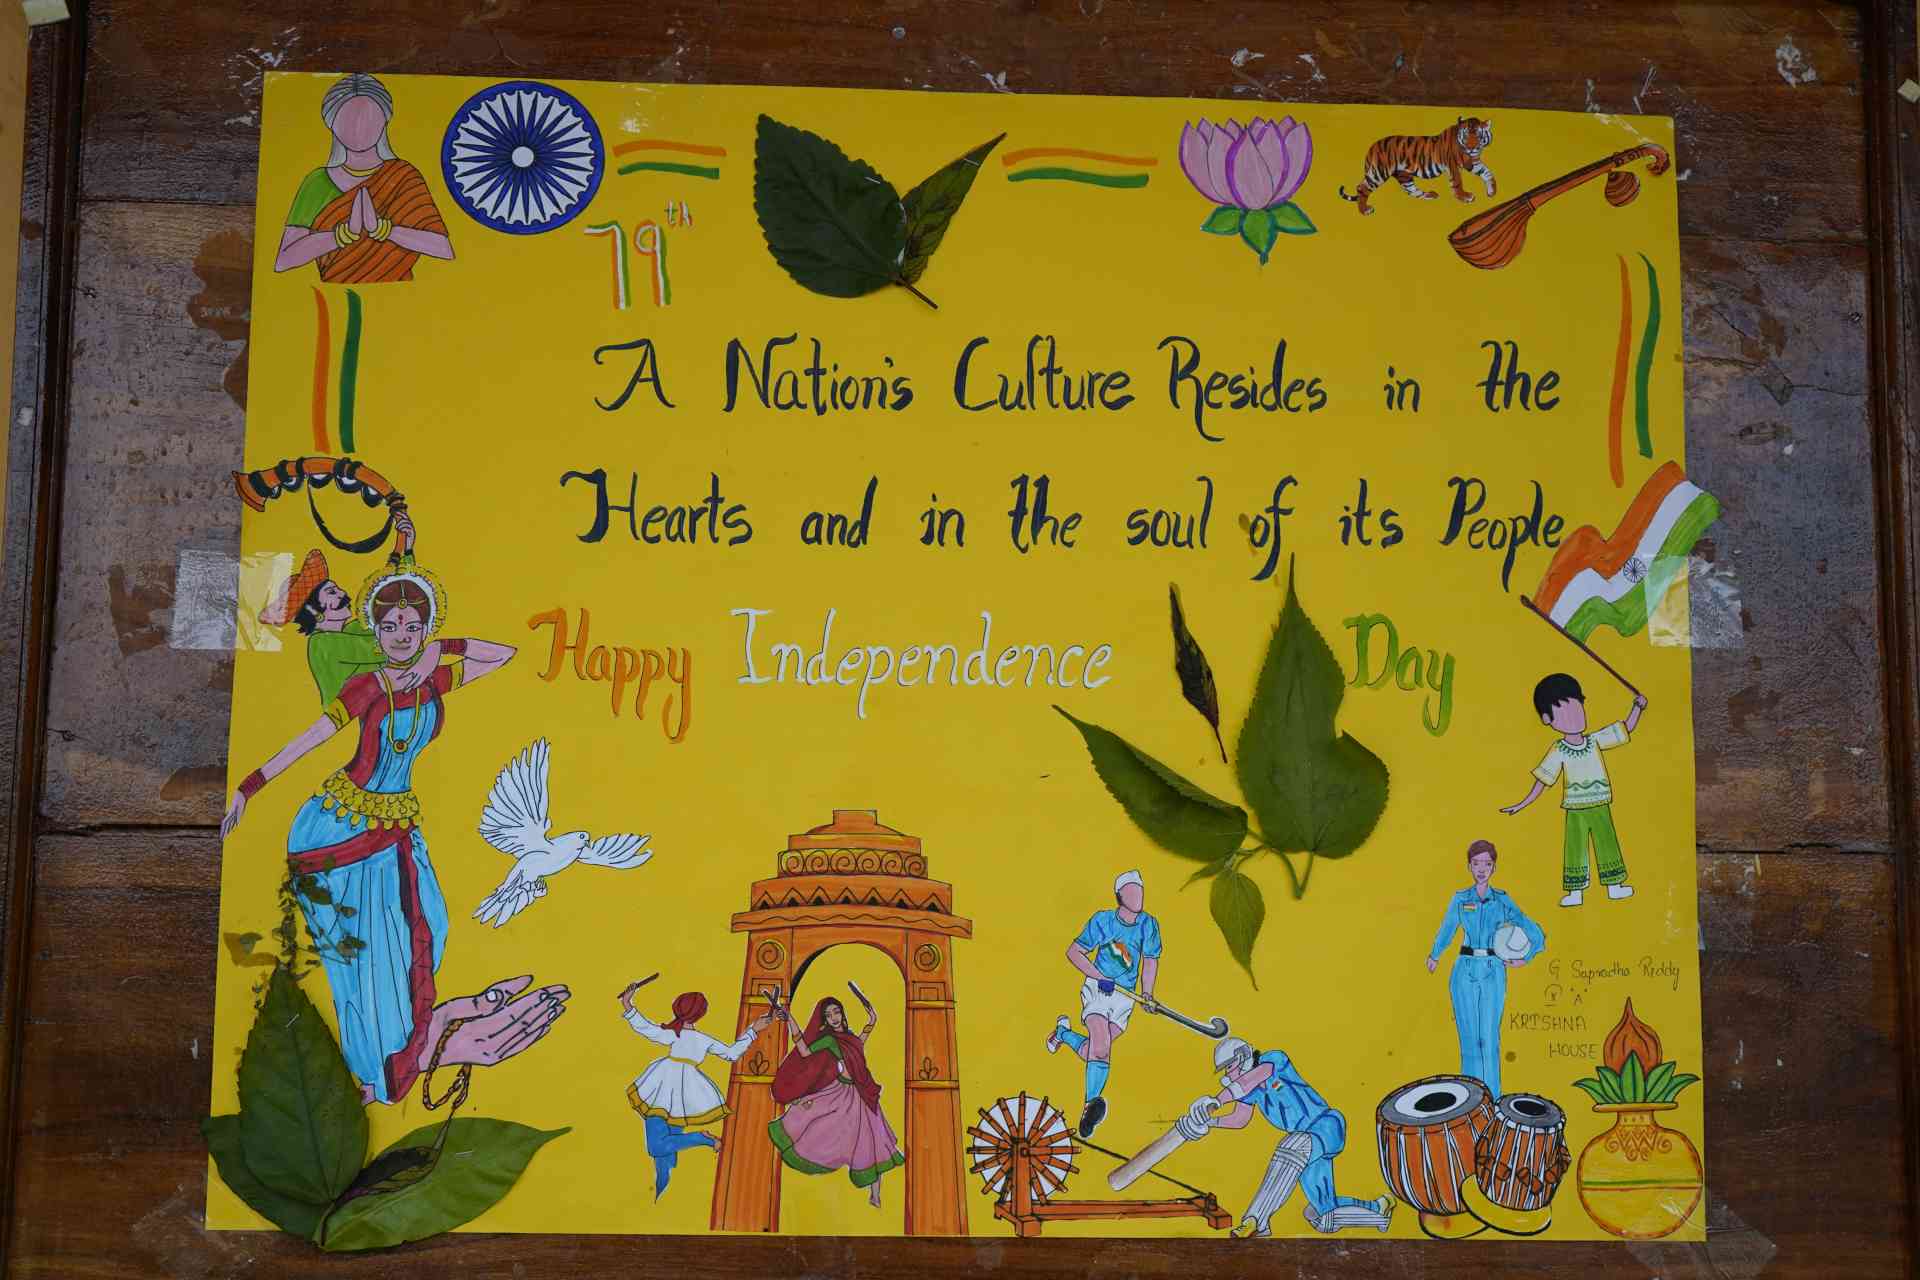 79th
A Nation's Culture Resides in the
Hearts and in the soul of its People
Happy Independence Day
G Sapradha Reddy
"A"
KRISHNA
HOUSE